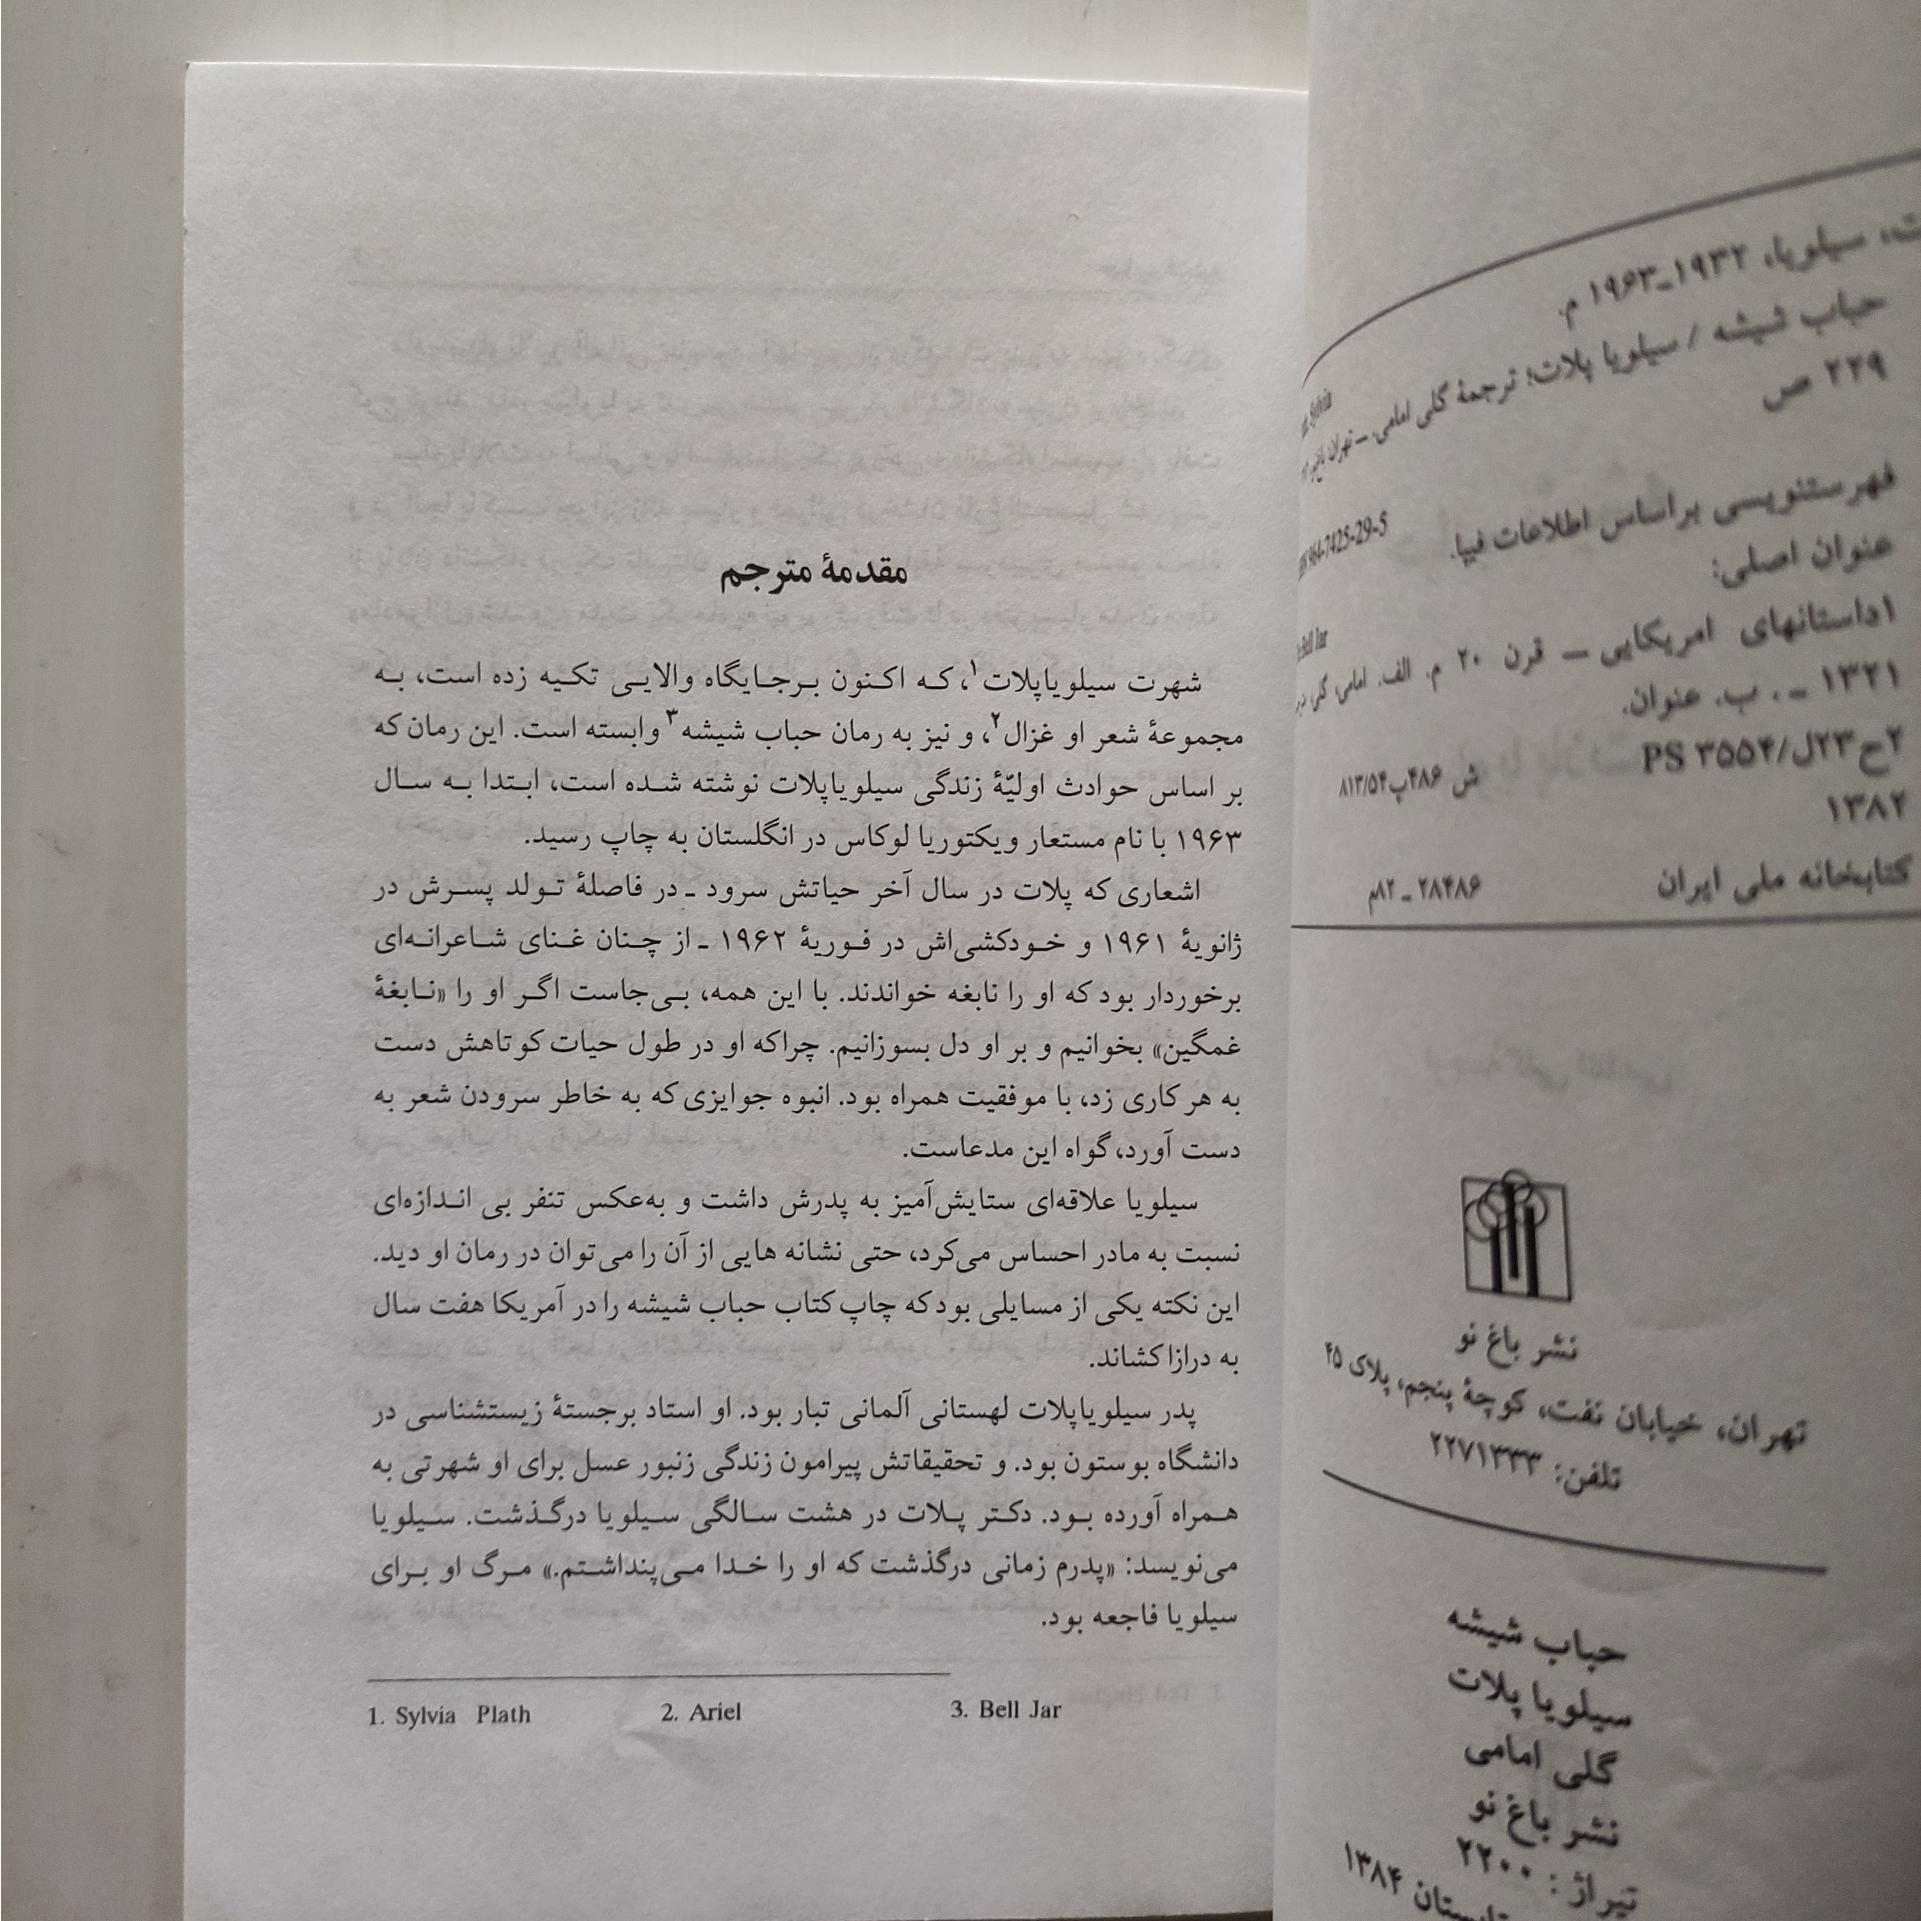 ت، سیلویا، ۱۹۳۲ـ۱۹۶۳ م.
حباب شیشه / سیلویا پلات؛ ترجمهٔ گلی امامی. ــ تهران
۲۲۹ ص
964-7425-29-5
فهرستنویسی براساس اطلاعات فیپا.
عنوان اصلی:
Bell Jar
۱داستانهای امریکایی ــ قرن ۲۰ م. الف. امامی، گلی
۱۳۲۱ ـ . ب. عنوان.
۲ح۲۳ل/PS ۳۵۵۴
ش ۴۸۶پ۸۱۳/۵۴
۱۳۸۲
کتابخانه ملی ایران
۲۸۴۸۶ ـ ۸۲م
نشر باغ نو
تهران، خیابان نفت، کوچهٔ پنجم، پلاک ۴۵
تلفن: ۲۲۷۱۳۳۳
حباب شیشه
سیلویا پلات
گلی امامی
نشر باغ نو
تیراژ : ۲۲۰۰
تابستان ۱۳۸۴
مقدمهٔ مترجم
شهرت سیلویاپلات۱، که اکنون برجایگاه والایی تکیه زده است، به
مجموعهٔ شعر او غزال۲، و نیز به رمان حباب شیشه۳ وابسته است. این رمان که
بر اساس حوادث اولیّهٔ زندگی سیلویاپلات نوشته شده است، ابتدا به سال
۱۹۶۳ با نام مستعار ویکتوریا لوکاس در انگلستان به چاپ رسید.
اشعاری که پلات در سال آخر حیاتش سرود ـ در فاصلهٔ تولد پسرش در
ژانویهٔ ۱۹۶۱ و خودکشی‌اش در فوریهٔ ۱۹۶۲ ـ از چنان غنای شاعرانه‌ای
برخوردار بود که او را نابغه خواندند. با این همه، بی‌جاست اگر او را «نابغهٔ
غمگین» بخوانیم و بر او دل بسوزانیم. چراکه او در طول حیات کوتاهش دست
به هر کاری زد، با موفقیت همراه بود. انبوه جوایزی که به خاطر سرودن شعر به
دست آورد، گواه این مدعاست.
سیلویا علاقه‌ای ستایش‌آمیز به پدرش داشت و به‌عکس تنفر بی اندازه‌ای
نسبت به مادر احساس می‌کرد، حتی نشانه هایی از آن را می‌توان در رمان او دید.
این نکته یکی از مسایلی بود که چاپ کتاب حباب شیشه را در آمریکا هفت سال
به درازا کشاند.
پدر سیلویاپلات لهستانی آلمانی تبار بود. او استاد برجستهٔ زیستشناسی در
دانشگاه بوستون بود. و تحقیقاتش پیرامون زندگی زنبور عسل برای او شهرتی به
همراه آورده بود. دکتر پلات در هشت سالگی سیلویا درگذشت. سیلویا
می‌نویسد: «پدرم زمانی درگذشت که او را خدا می‌پنداشتم.» مرگ او برای
سیلویا فاجعه بود.
1. Sylvia Plath 2. Ariel 3. Bell Jar